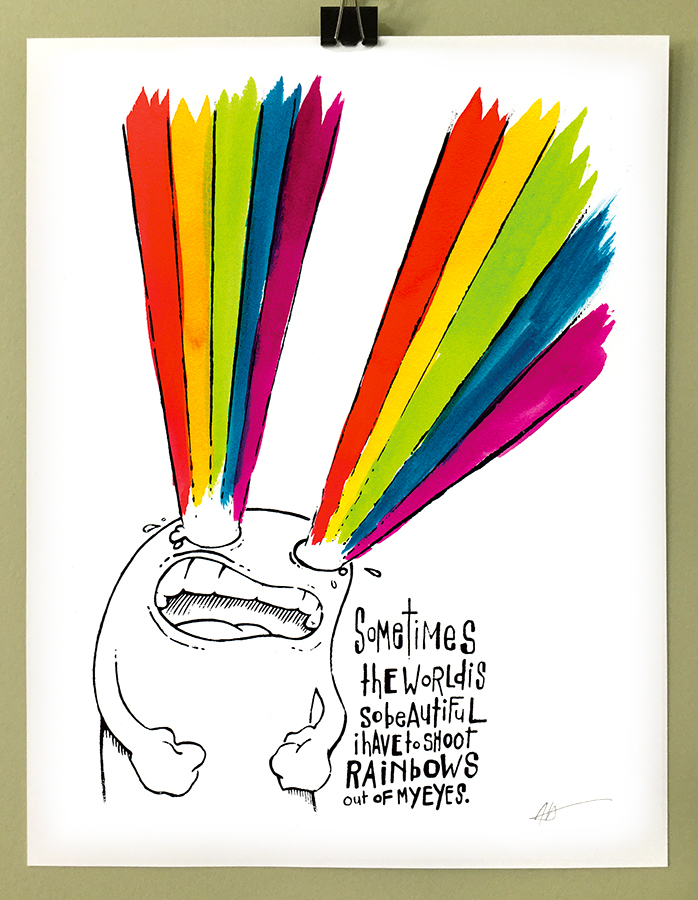 SometImes
thE WoRLd is
so beAutiFuL
i hAVE to SHoot
RAiNboWS
out oF MY EYES.